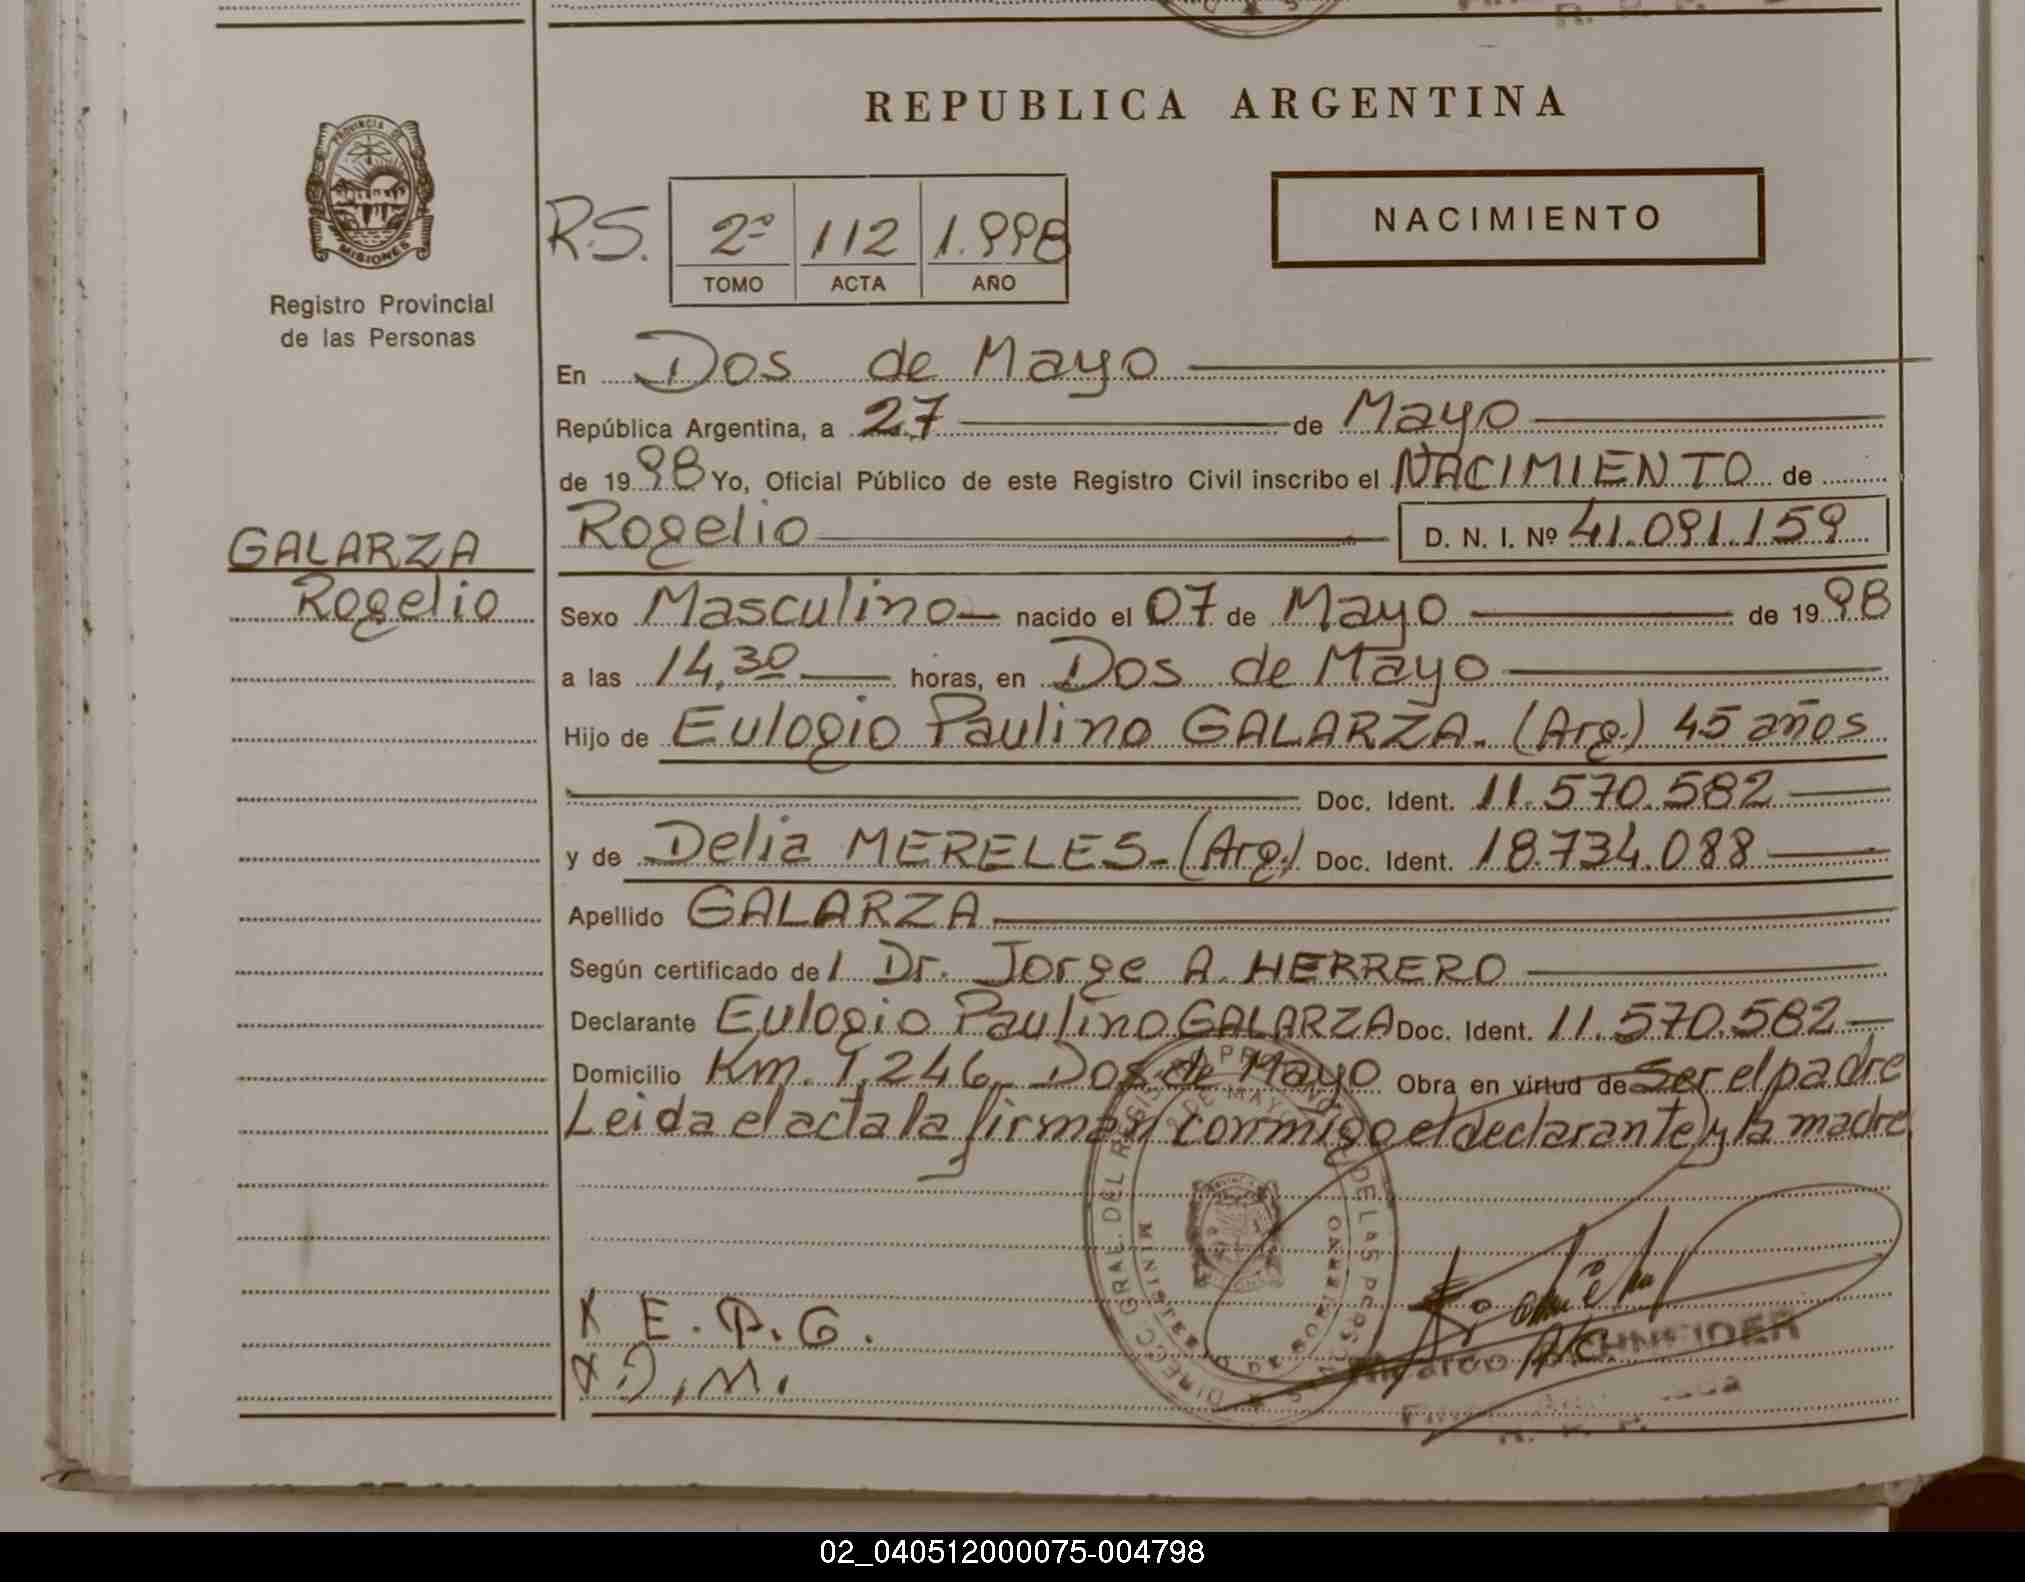 REPUBLICA ARGENTINA
PROVINCIA D
MISIONES
Registro Provincial
de las Personas
NACIMIENTO
R.S. 2º 112 1.998
TOMO ACTA AÑO
En Dos de Mayo
República Argentina, a 27 de Mayo
de 1998 Yo, Oficial Público de este Registro Civil inscribo el NACIMIENTO de
Rogelio D. N. I. Nº 41.091.159
GALARZA
Rogelio
Sexo Masculino nacido el 07 de Mayo de 1998
a las 14,30 horas, en Dos de Mayo
Hijo de Eulogio Paulino GALARZA. (Arg.) 45 años
Doc. Ident. 11.570.582
y de Delia MERELES-(Arg.) Doc. Ident. 18.734.088
Apellido GALARZA
Según certificado de l Dr. Jorge A. HERRERO
Declarante Eulogio Paulino GALARZA Doc. Ident. 11.570.582
Domicilio Km. 1.246 Dos de Mayo Obra en virtud de Ser el padre
Leida el acta la firman conmigo el declarante y la madre
DIRECC. GRAL. DEL REGIST PROV DE LAS PERSONAS
DE MAYO
MINISTER DE GOBIERNO
X E.P.G.
X D.M.
Ricardo SCHNEIDER
02_040512000075-004798